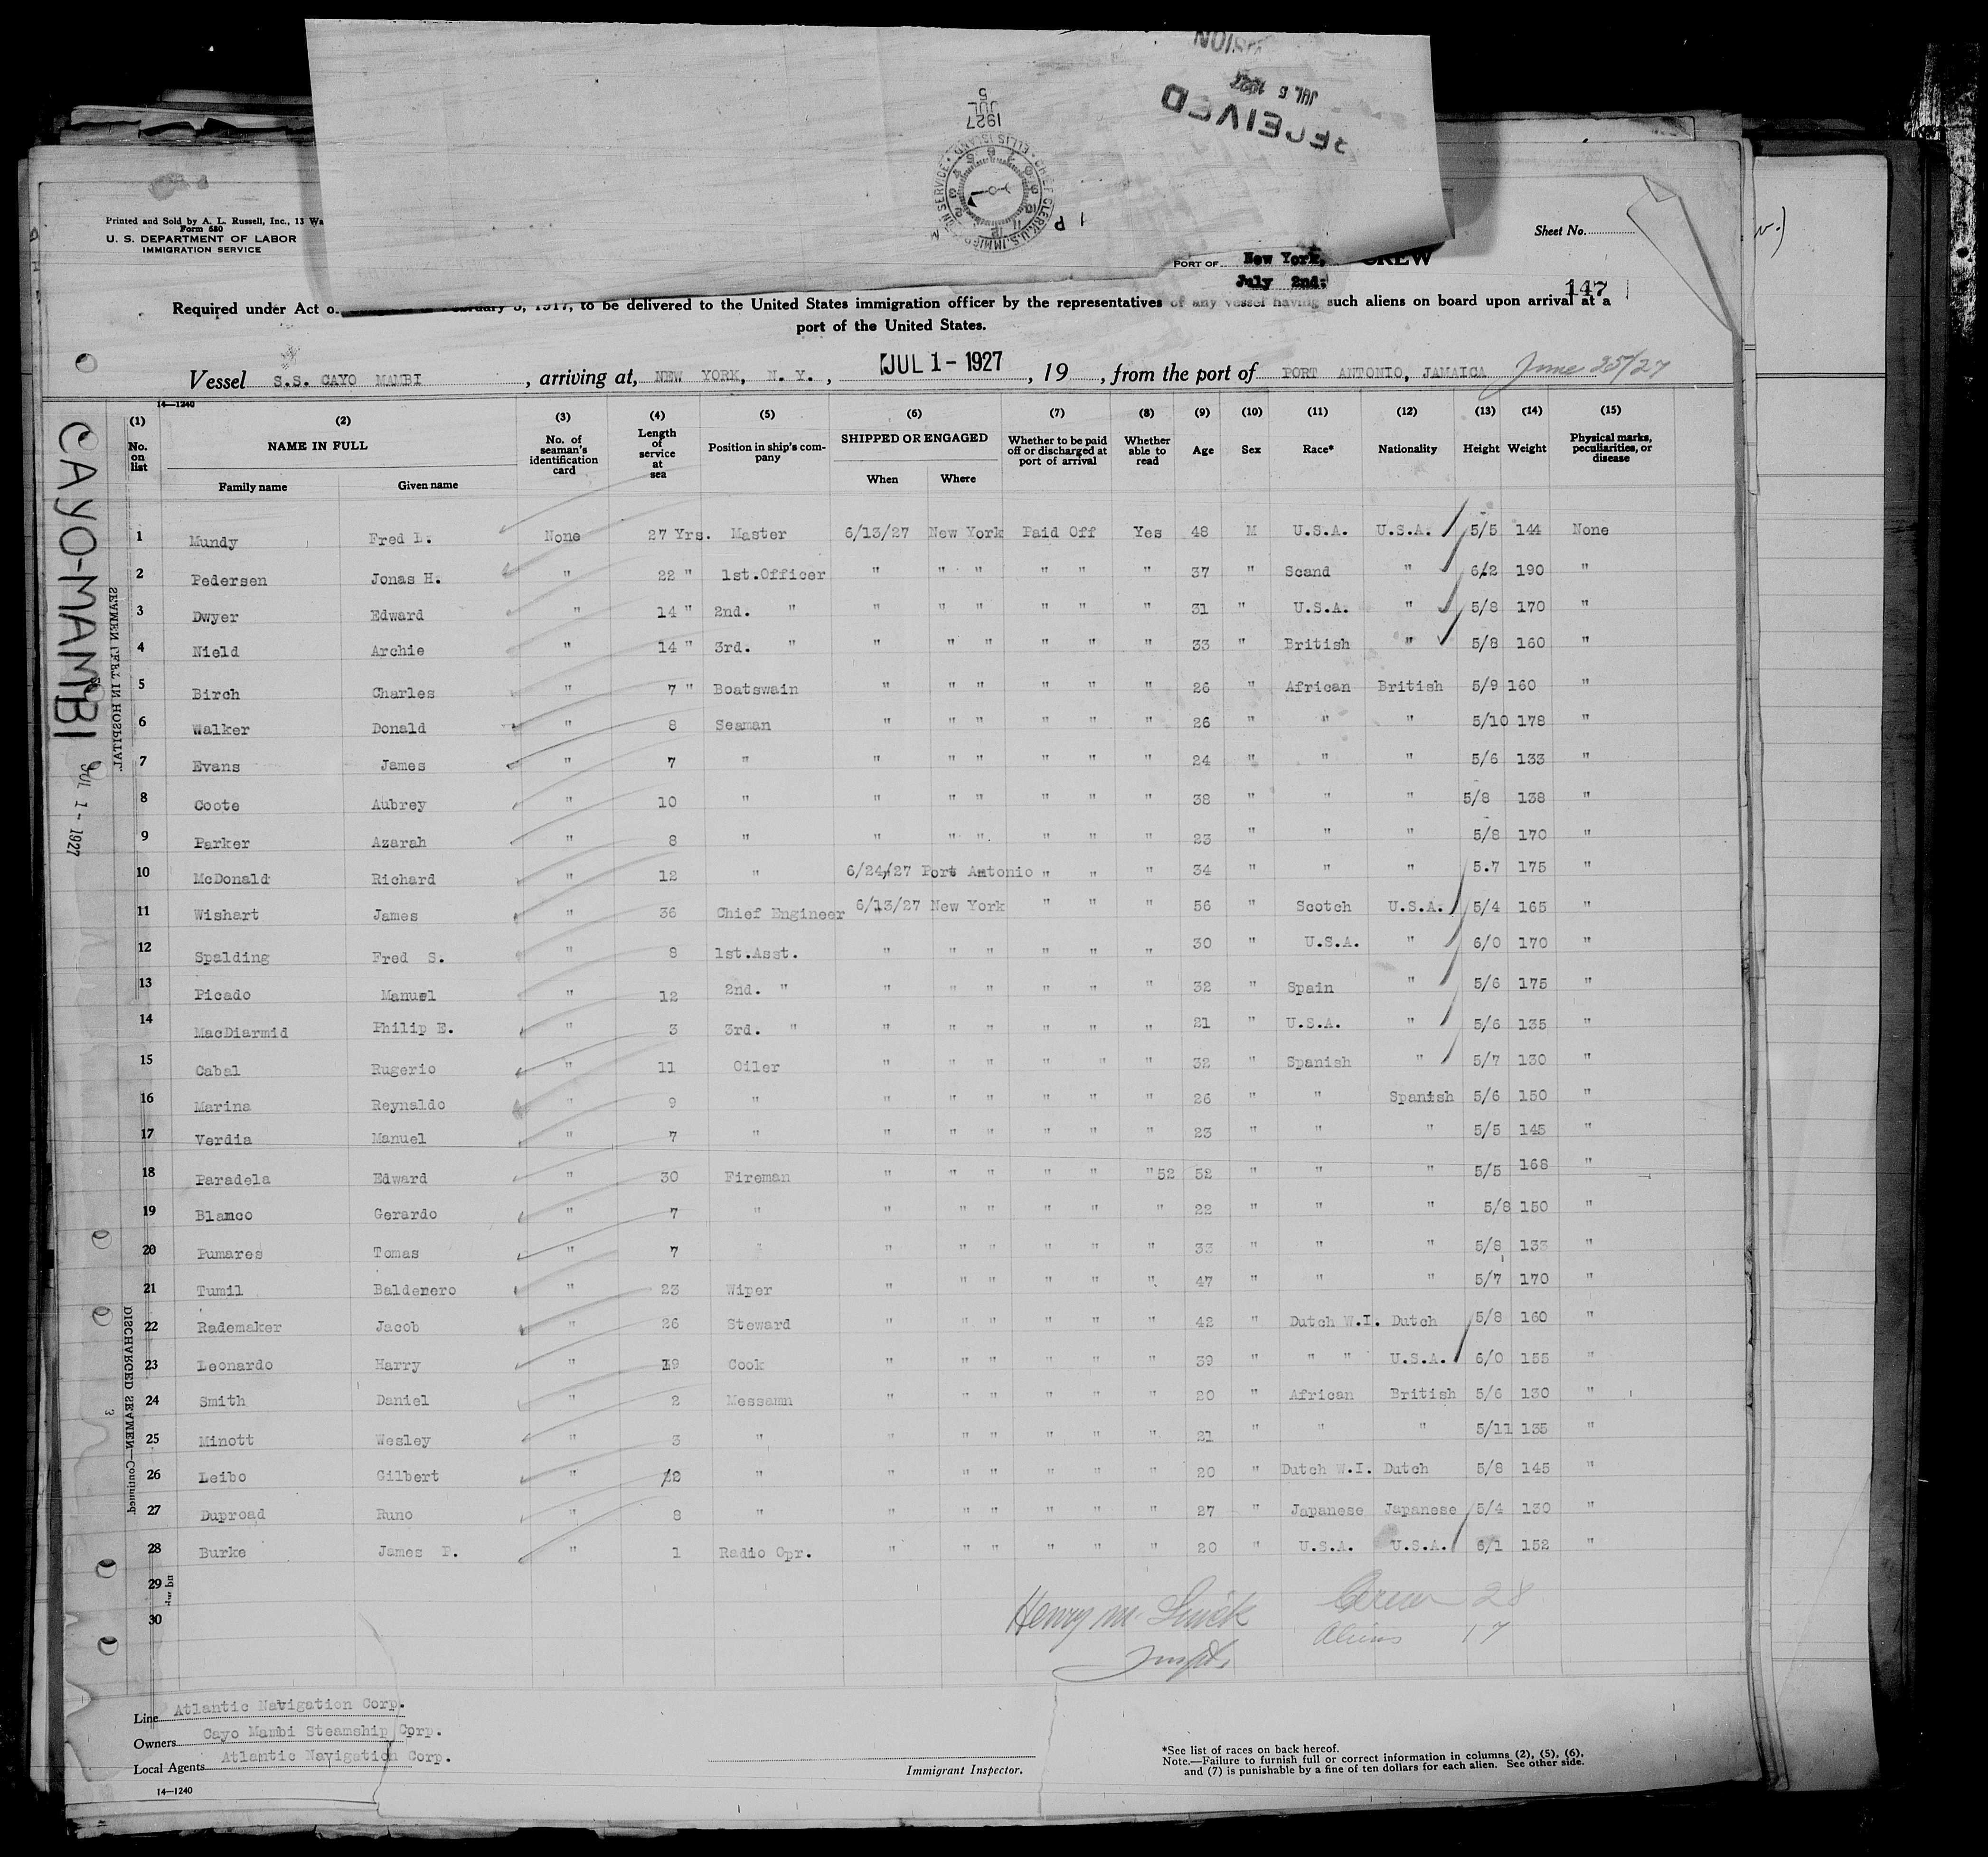 RECEIVED
JUL 6 1927
1927
JUL
5
CHIEF CLERK, U.S. IMMIGRATION SERVICE ELLIS ISLAND
1 P M
Printed and Sold by A. L. Russell, Inc., 13 Wa
Form 680
U. S. DEPARTMENT OF LABOR
IMMIGRATION SERVICE
Sheet No.
PORT OF New York, CREW
July 2nd:
147
Required under Act o ebruary 5, 1917, to be delivered to the United States immigration officer by the representatives of any vessel having such aliens on board upon arrival at a
port of the United States.
Vessel S.S. CAYO MAMBI, arriving at, NEW YORK, N. Y., JUL 1 - 1927, 19, from the port of PORT ANTONIO, JAMAICA June 25/27
14—1240
(1) (2) (3) (4) (5) (6) (7) (8) (9) (10) (11) (12) (13) (14) (15)
No. on list NAME IN FULL No. of seaman's identification card Length of service at sea Position in ship's company SHIPPED OR ENGAGED Whether to be paid off or discharged at port of arrival Whether able to read Age Sex Race* Nationality Height Weight Physical marks, peculiarities, or disease
Family name Given name When Where
1 Mundy Fred L. None 27 Yrs. Master 6/13/27 New York Paid Off Yes 48 M U.S.A. U.S.A. 5/5 144 None
2 Pedersen Jonas H. " 22 " 1st.Officer " " " " " " 37 " Scand " 6.2 190 "
3 Dwyer Edward " 14 " 2nd. " " " " " " " 31 " U.S.A. " 5/8 170 "
4 Nield Archie " 14 " 3rd. " " " " " " " 33 " British " 5/8 160 "
5 Birch Charles " 7 " Boatswain " " " " " " 26 " African British 5/9 160 "
6 Walker Donald " 8 Seaman " " " " " " 26 " " " 5/10 178 "
7 Evans James " 7 " " " " " " " 24 " " " 5/6 133 "
8 Coote Aubrey " 10 " " " " " " " 38 " " " 5/8 138 "
9 Parker Azarah " 8 " " " " " " " 23 " " " 5/8 170 "
10 McDonald Richard " 12 " 6/24/27 Port Antonio " " " 34 " " " 5.7 175 "
11 Wishart James " 36 Chief Engineer 6/13/27 New York " " " 56 " Scotch U.S.A. 5/4 165 "
12 Spalding Fred S. " 8 1st.Asst. " " " " " " 30 " U.S.A. " 6/0 170 "
13 Picado Manuel " 12 2nd. " " " " " " " 32 " Spain " 5/6 175 "
14 MacDiarmid Philip E. " 3 3rd. " " " " " " " 21 " U.S.A. " 5/6 135 "
15 Cabal Rugerio " 11 Oiler " " " " " " 32 " Spanish " 5/7 130 "
16 Marina Reynaldo " 9 " " " " " " " 26 " " Spanish 5/6 150 "
17 Verdia Manuel " 7 " " " " " " " 23 " " " 5/5 145 "
18 Paradela Edward " 30 Fireman " " " " " " 52 52 " " " 5/5 168 "
19 Blanco Gerardo " 7 " " " " " " " 22 " " " 5/8 150 "
20 Pumares Tomas " 7 " " " " " " 33 " " " 5/8 133 "
21 Tumil Baldenero " 23 Wiper " " " " " " 47 " " " 5/7 170 "
22 Rademaker Jacob " 26 Steward " " " " " " 42 " Dutch W.I. Dutch 5/8 160 "
23 Leonardo Harry " 19 Cook " " " " " " 39 " " " U.S.A. 6/0 155 "
24 Smith Daniel " 2 Messamn " " " " " " 20 " African British 5/6 130 "
25 Minott Wesley " 3 " " " " " " " 21 " " " 5/11 135 "
26 Leibo Gilbert " 2 " " " " " " " 20 " Dutch W.I. Dutch 5/8 145 "
27 Duproad Runo " 8 " " " " " " " 27 " Japanese Japanese 5/4 130 "
28 Burke James P. " 1 Radio Opr. " " " " " " 20 " U.S.A. U.S.A. 6/1 152 "
29
30
Henry M. Crew 28
Aliens 17
Line Atlantic Navigation Corp.
Owners Cayo Mambi Steamship Corp.
Local Agents Atlantic Navigation Corp.
Immigrant Inspector.
*See list of races on back hereof.
Note.—Failure to furnish full or correct information in columns (2), (5), (6),
and (7) is punishable by a fine of ten dollars for each alien. See other side.
14—1240
CAYO-MAMBI JUL 1 - 1927
SEAMEN LEFT IN HOSPITAL
DISCHARGED SEAMEN—Continued
3